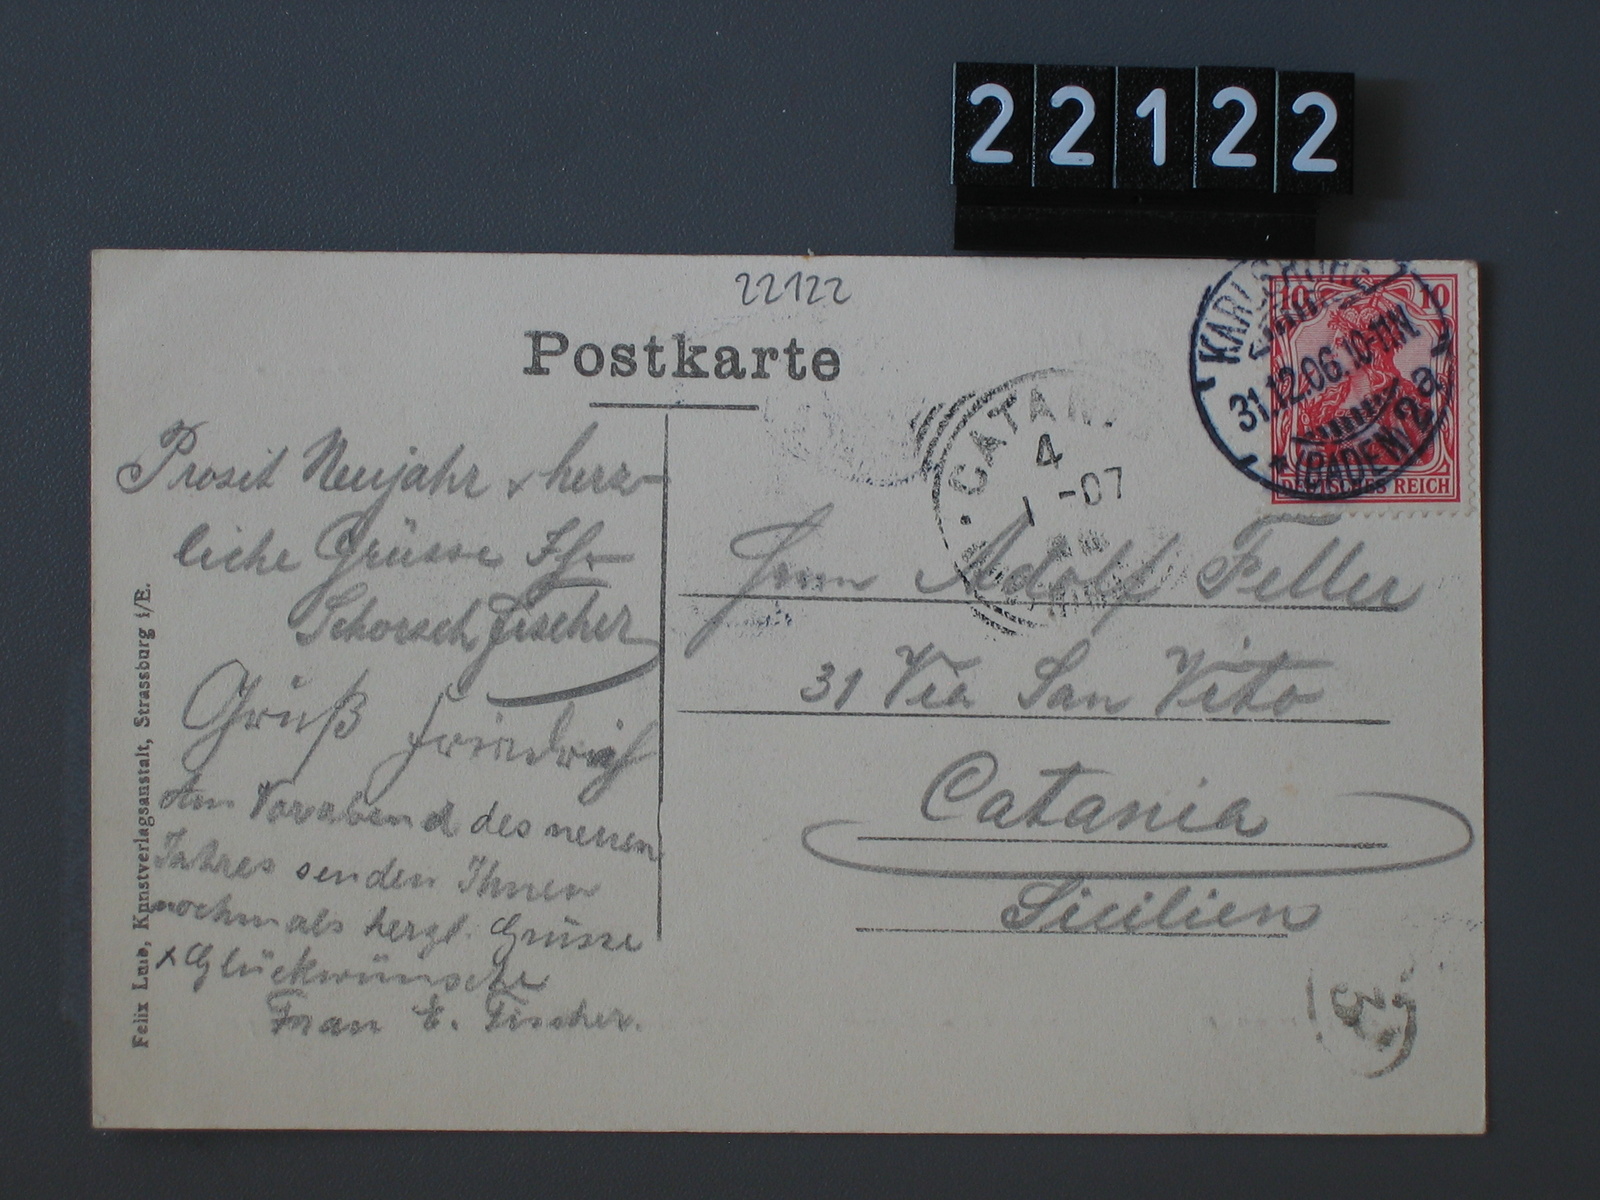 22122
22122
Postkarte
KARLSRUHE
31.12.06.10-11N.
* (BADEN) 2a
10 10
DEUTSCHES REICH
CATANIA
4
1 -07
Prosit Neujahr & herz-
liche Grüsse Ihr
Schorsch Fischer
Gruß Friedrich
Am Vorabend des neuen
Jahres senden Ihnen
nochmals herzl. Grüsse
& Glückwünsche
Frau E. Fischer.
Herrn Adolf Feller
31 Via San Vito
Catania
Sicilien
Felix Luib, Kunstverlagsanstalt, Strassburg i/E.
3